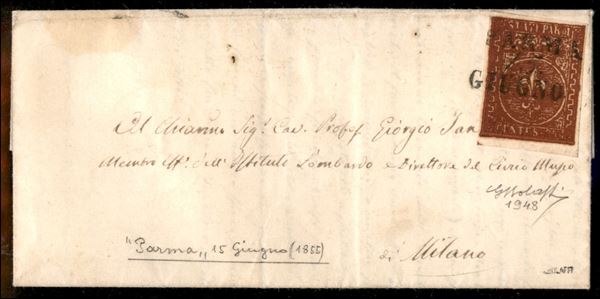 STATI PARM
PARMA
GIUGNO
CENTES
Al Chiarmo Sigr. Cav. Profess. Giorgio Jan
Membro Eff. dell'Istituto Lombardo e Direttore del Civico Museo
GBolaffi
1948
"Parma„ 15 Giugno (1855)
di Milano